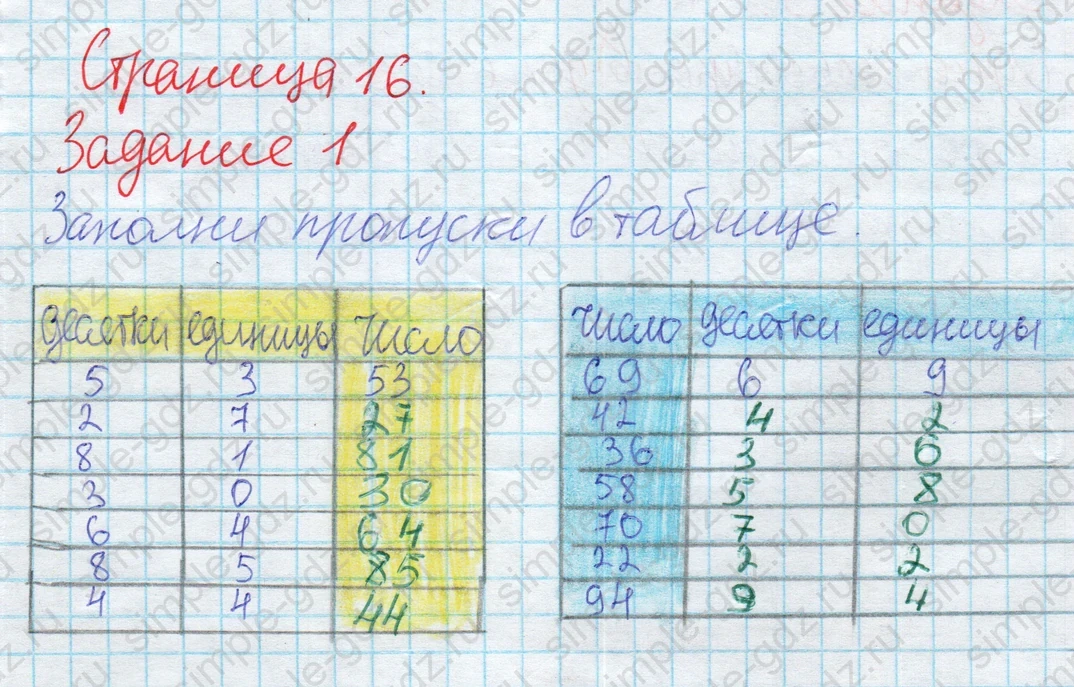 Страница 16.
Задание 1
Заполни пропуски в таблице.
десятки единицы число
5 3 53
2 7 27
8 1 81
3 0 30
6 4 64
8 5 85
4 4 44
число десятки единицы
69 6 9
42 4 2
36 3 6
58 5 8
70 7 0
22 2 2
94 9 4
simple-gdz.ru